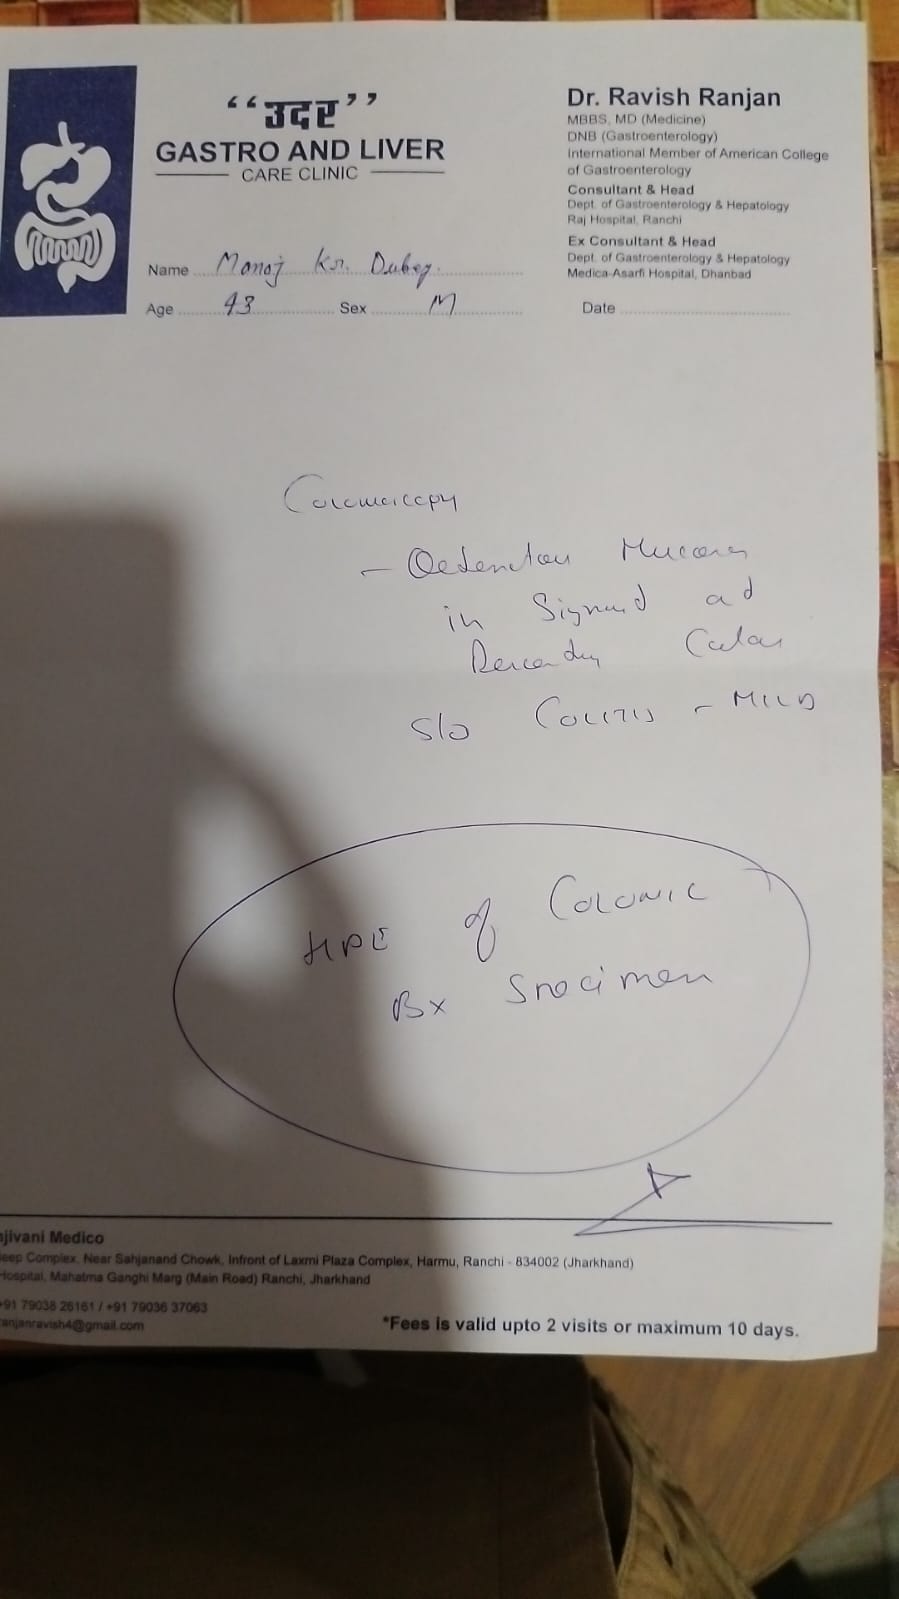 “उदर”
GASTRO AND LIVER
CARE CLINIC
Dr. Ravish Ranjan
MBBS, MD (Medicine)
DNB (Gastroenterology)
International Member of American College
of Gastroenterology
Consultant & Head
Dept. of Gastroenterology & Hepatology
Raj Hospital, Ranchi
Ex Consultant & Head
Dept. of Gastroenterology & Hepatology
Medica-Asarfi Hospital, Dhanbad
Name Manoj Kr. Dubey.
Age 43 Sex M Date
Colonoscopy
- Oedematous Mucosa
in Sigmoid ad
Descending Colon
S/o COLITIS - MILD
HPE of COLONIC
Bx Specimen
jivani Medico
eep Complex, Near Sahjanand Chowk, Infront of Laxmi Plaza Complex, Harmu, Ranchi - 834002 (Jharkhand)
Hospital, Mahatma Ganghi Marg (Main Road) Ranchi, Jharkhand
+91 79038 26161 / +91 79036 37063
ranjanravish4@gmail.com
*Fees is valid upto 2 visits or maximum 10 days.